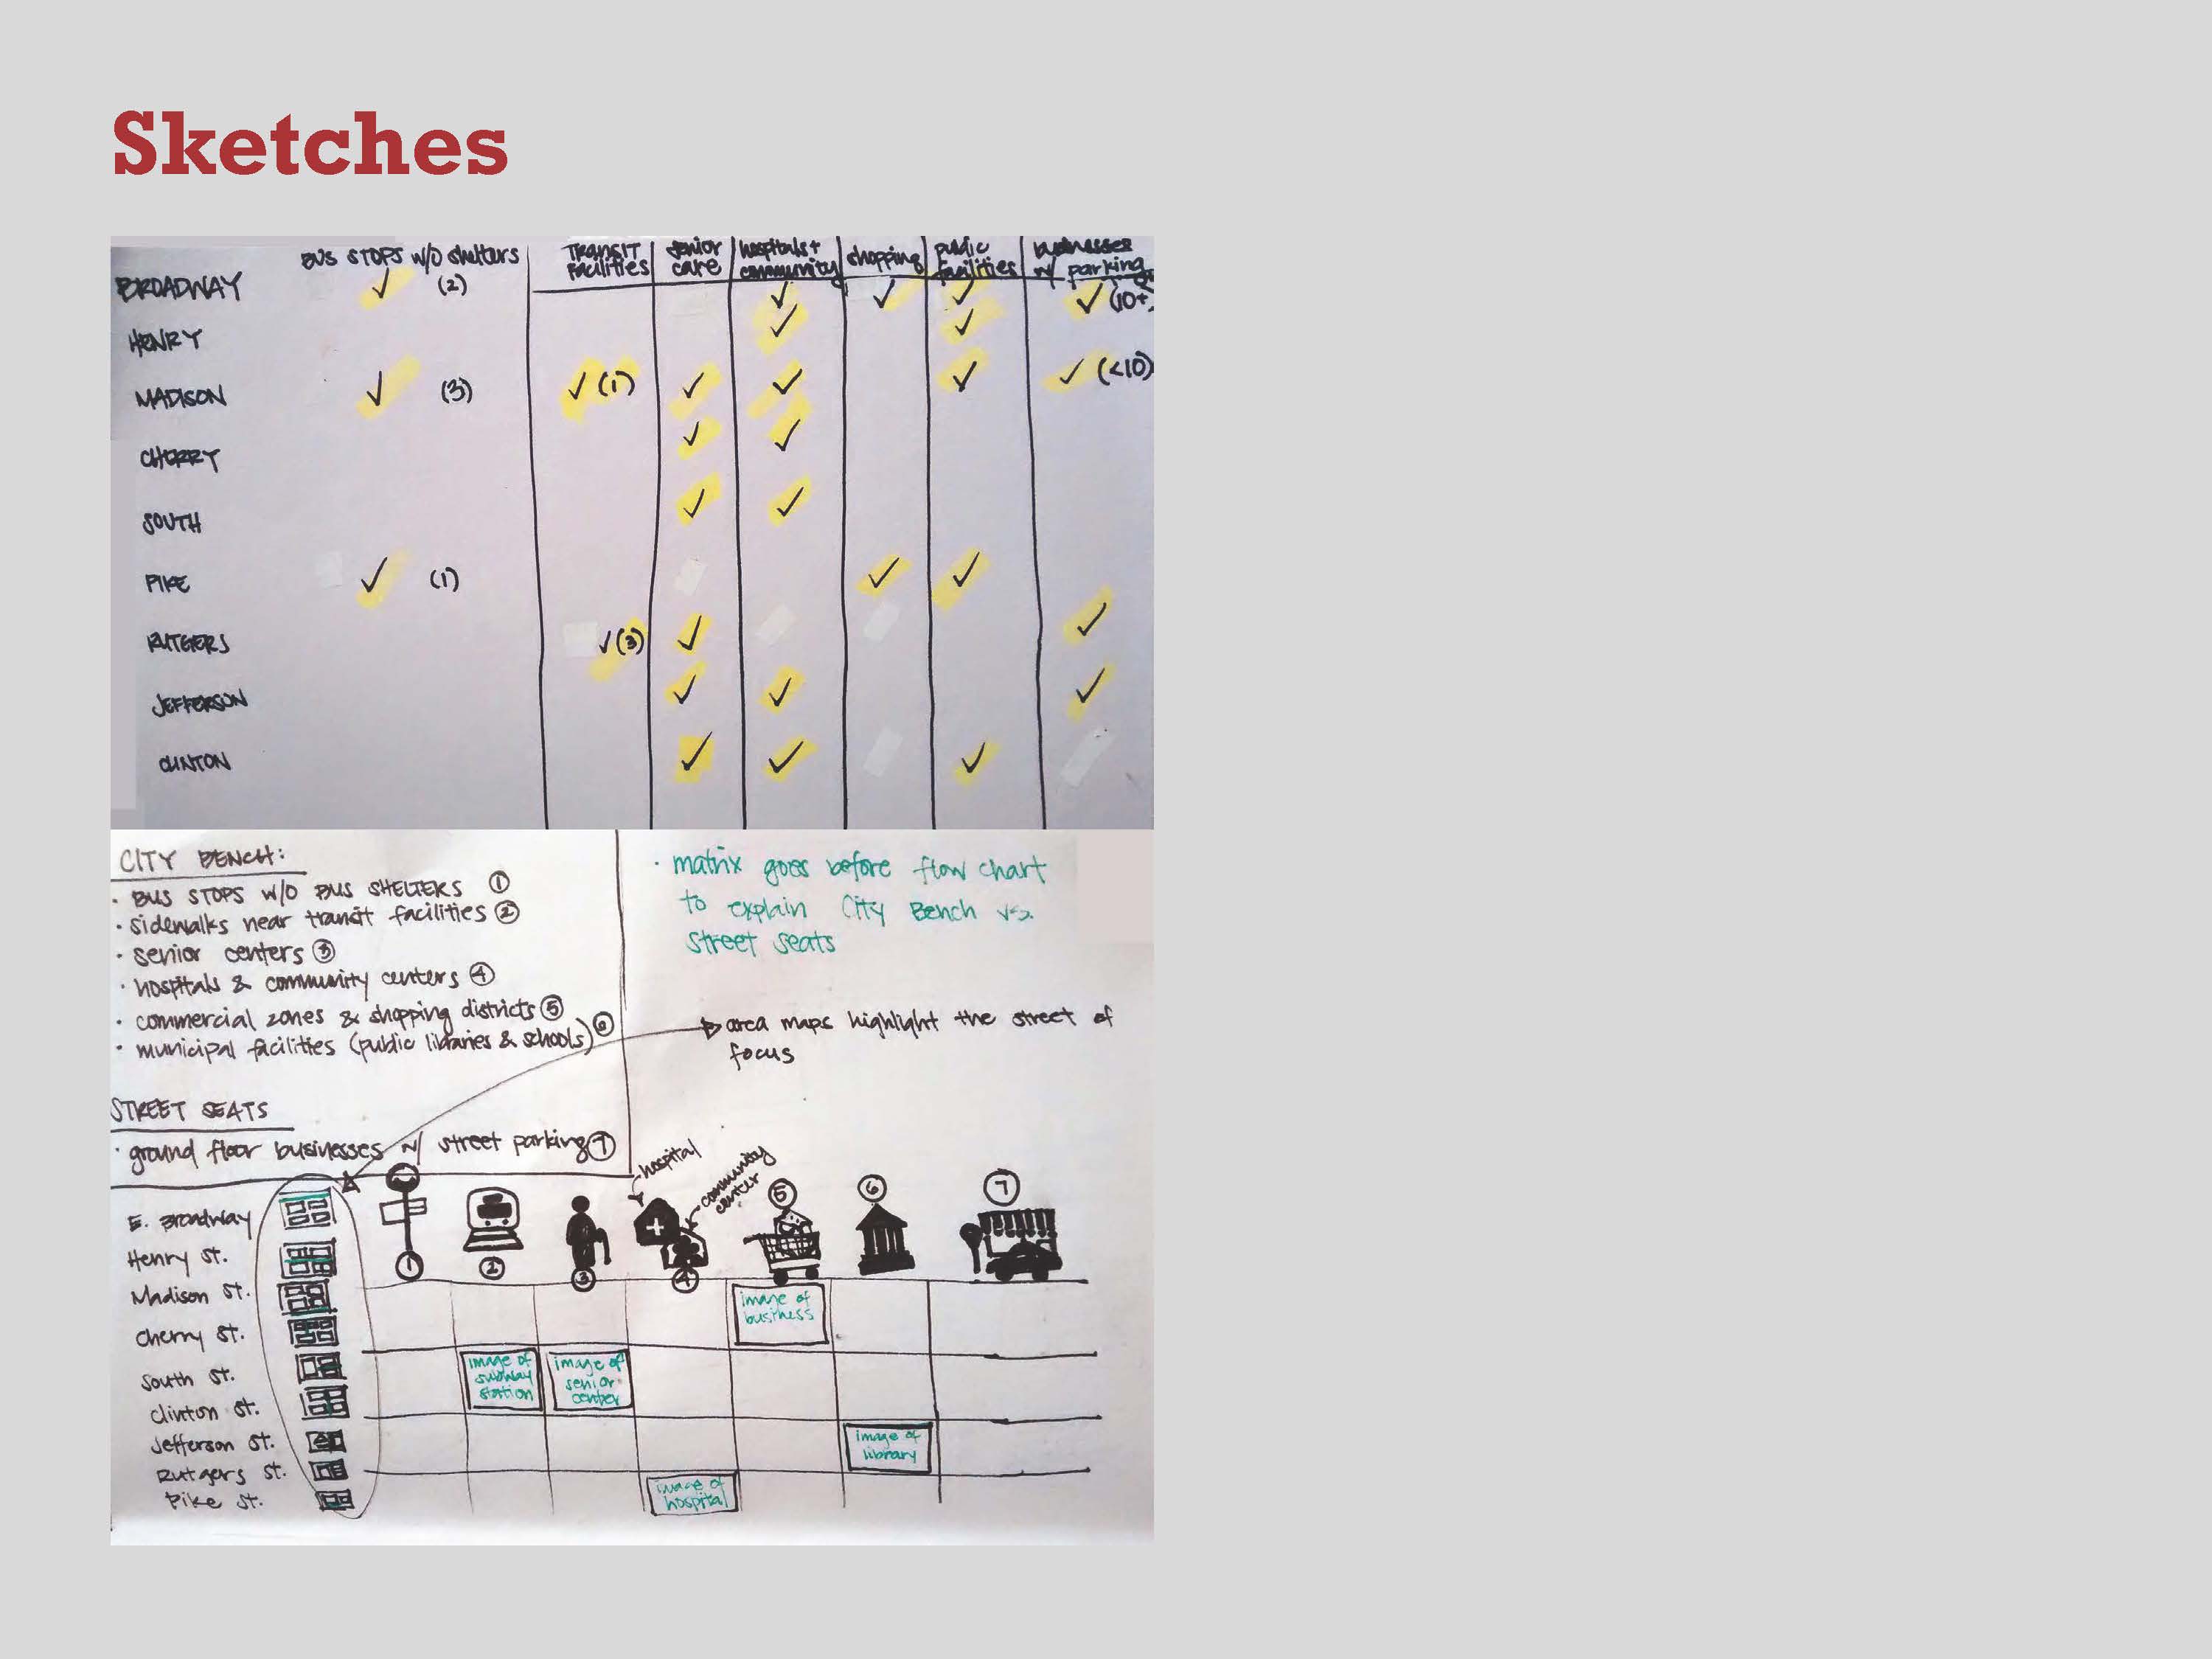 Sketches
BUS STOPS w/o shelters TRANSIT FACILITIES senior care hospitals + community shopping public facilities businesses w/ parking
BROADWAY ✓ (2) ✓ ✓ ✓ ✓ (10+
HENRY ✓ ✓
MADISON ✓ (3) ✓ (1) ✓ ✓ ✓ ✓ (<10)
CHERRY ✓ ✓
SOUTH ✓ ✓
PIKE ✓ (1) ✓ ✓
RUTGERS ✓ (3) ✓ ✓
JEFFERSON ✓ ✓ ✓
CLINTON ✓ ✓ ✓
CITY BENCH:
· BUS STOPS W/O BUS SHELTERS ①
· sidewalks near transit facilities ②
· senior centers ③
· hospitals & community centers ④
· commercial zones & shopping districts ⑤
· municipal facilities (public libraries & schools) ⑥
· matrix goes before flow chart
to explain City Bench vs.
street seats
area maps highlight the street of
focus
STREET SEATS
· ground floor businesses w/ street parking ⑦
hospital
community
center
① ② ③ ④ ⑤ ⑥ ⑦
E. Broadway
Henry St.
Madison St.
Cherry St.
South St.
Clinton St.
Jefferson St.
Rutgers St.
Pike St.
image of
business
image of
subway
station
image of
senior
center
image of
library
image of
hospital